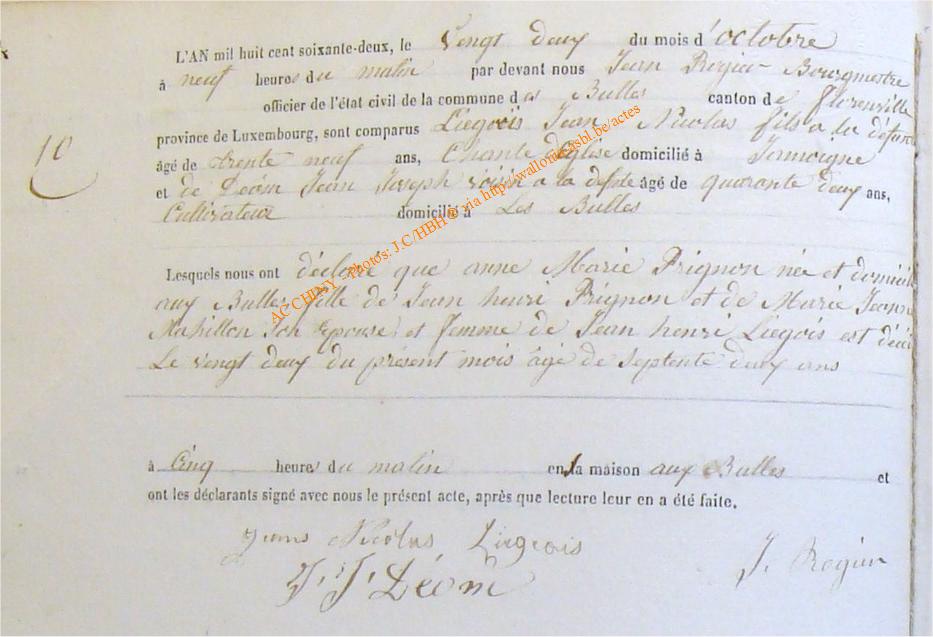 L'AN mil huit cent soixante-deux, le Vengt deux du mois d'octobre
à neuf heures du matin par devant nous Jean Rogier Bourgmestre
officier de l'état civil de la commune des Bulles canton de florenville
province de Luxembourg, sont comparus Liegeois Jean Nicolas fils a la défunt
10
âgé de trente neuf ans, Chantre d'église domicilié à Jamoigne
et de Léons Jean Joseph voisin a la defte âgé de quarante deux ans,
Cultivateur domicilié à Les Bulles
ACCHINY - Photos: J.C/HBH @ via http://wallonia-asbl.be/actes
Lesquels nous ont déclaré que anne Marie Prignon née et domicili
aux Bulles fille de Jean henri Prignon et de Marie Jeann
Mahillon son Epouse, et femme de Jean henri Liegois est décé
Le vengt deux du présent mois âgé de Septente deux ans
à Cinq heures du matin en la maison aux Bulles et
ont les déclarants signé avec nous le présent acte, après que lecture leur en a été faite.
Jean Nicolas Liegeois
J. Rogier
J. J. Léons